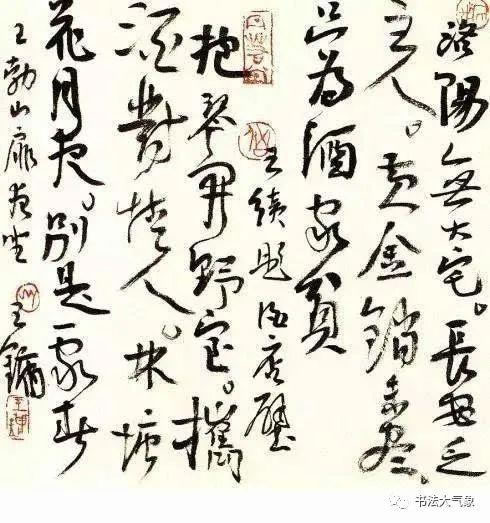 洛陽無大宅。長安乏
主人。黄金銷未盡。
只為酒家貧
王績題酒店壁
抱琴開野室。攜
酒對情人。林塘
花月夜。別是一家春
王勃山扉夜坐 王鏞
书法大气象